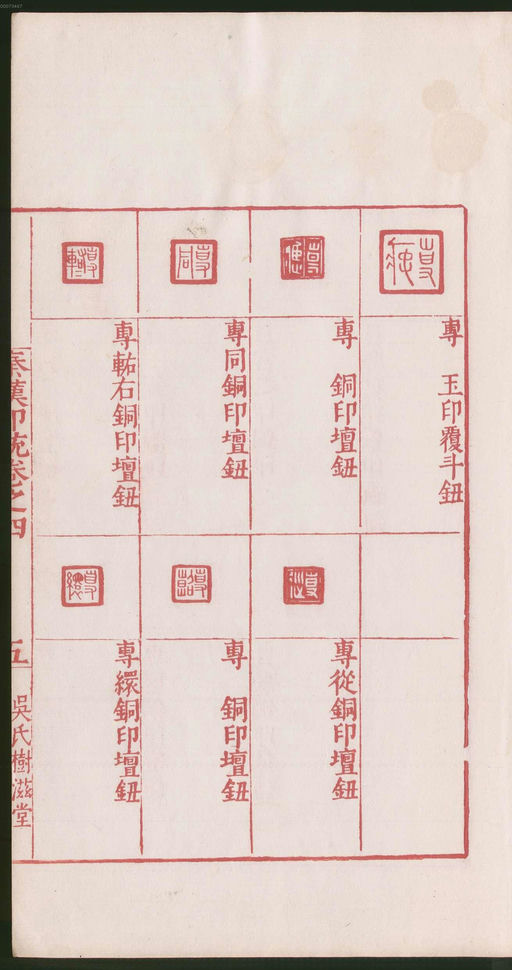 00073447
專　玉印覆斗鈕
專　銅印壇鈕
專同銅印壇鈕
專軲右銅印壇鈕
專從銅印壇鈕
專　銅印壇鈕
專繯銅印壇鈕
秦漢印統卷之四
五
吳氏樹滋堂